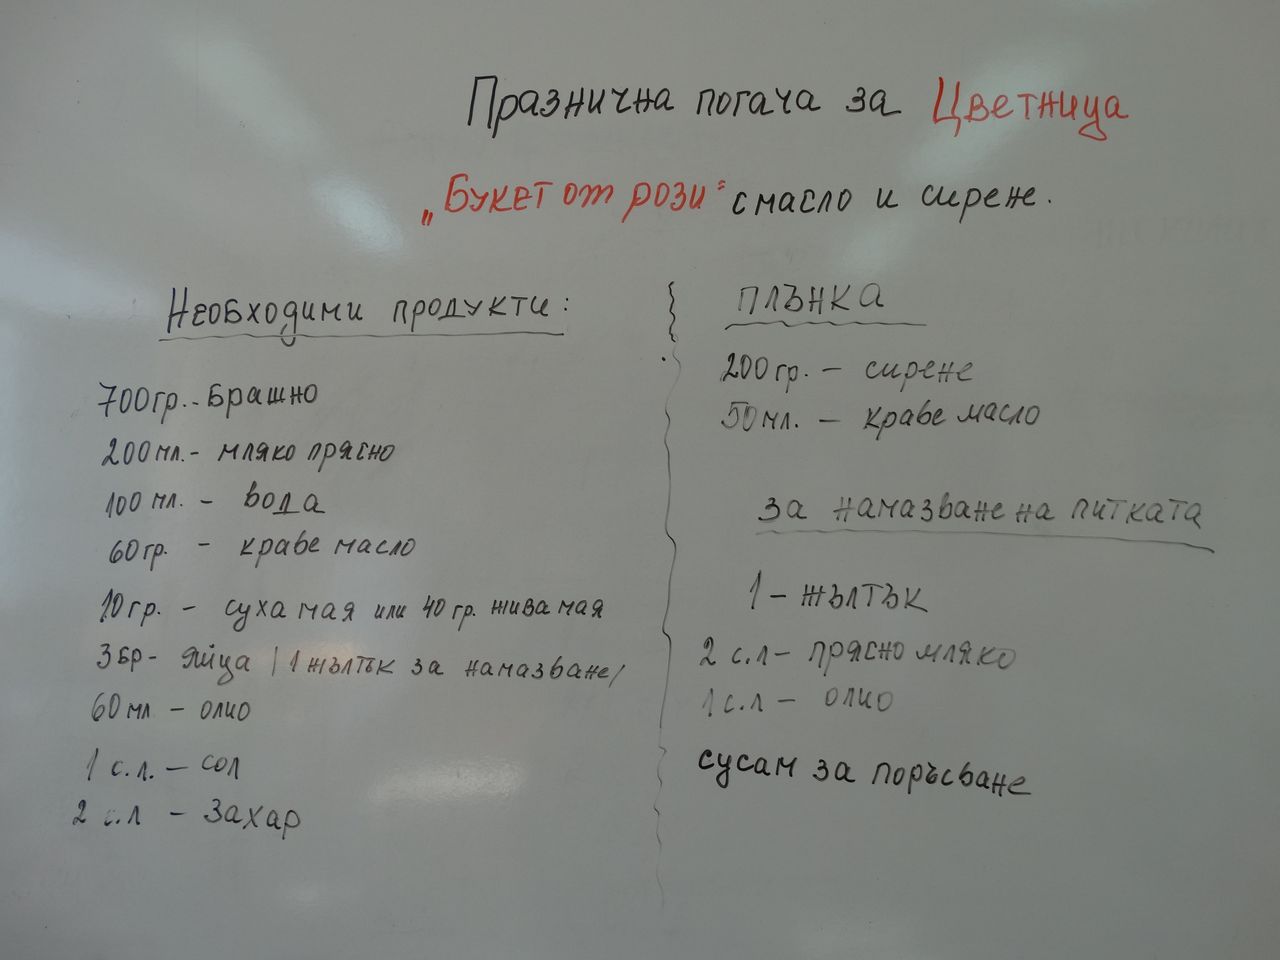 Празнична погача за Цветница
„Букет от рози" с масло и сирене.
Необходими продукти:
700гр. - Брашно
200 мл. - мляко прясно
100 мл. - вода
60гр. - краве масло
10гр. - суха мая или 40 гр. жива мая
3 бр - яйца /1 жълтък за намазване/
60 мл - олио
1 с.л. - сол
2 с.л - Захар
ПЛЪНКА
200 гр. - сирене
50 мл. - краве масло
за намазване на питката
1 - жълтък
2 с.л - прясно мляко
1 с.л - олио
сусам за поръсване